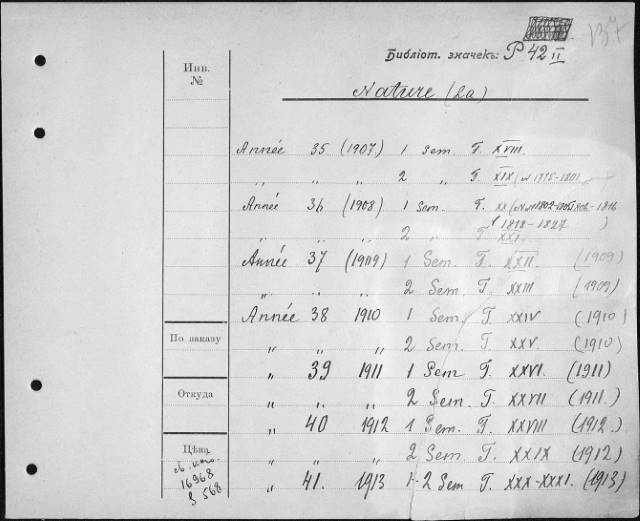 137
Библіот. значекъ: P 42 II
Инв. №
Nature (La)
Année 35 (1907) 1 Sem. T. XVIII.
„ „ „ 2 „ T. XIX (
Année 36 (1908) 1 Sem. T. XX (
1818-1827
„ „ „ 2 „ T. XXI.
Année 37 (1909) 1 Sem. T. XXII. (1909)
„ „ „ 2 Sem. T. XXIII (1909)
Année 38 1910 1 Sem. T. XXIV (1910)
По заказу
„ „ „ 2 Sem. T. XXV. (1910)
„ 39 1911 1 Sem T. XXVI. (1911)
Откуда
„ „ „ 2 Sem. T. XXVII (1911.)
„ 40 1912 1 Sem. T. XXVIII (1912.)
Цѣна
„ „ „ 2 Sem. T. XXIX (1912)
16968
§ 568
„ 41. 1913 1-2 Sem T. XXX-XXXI. (1913)